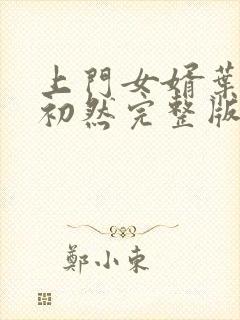 上門女婿葉
初然完整版
鄭小東